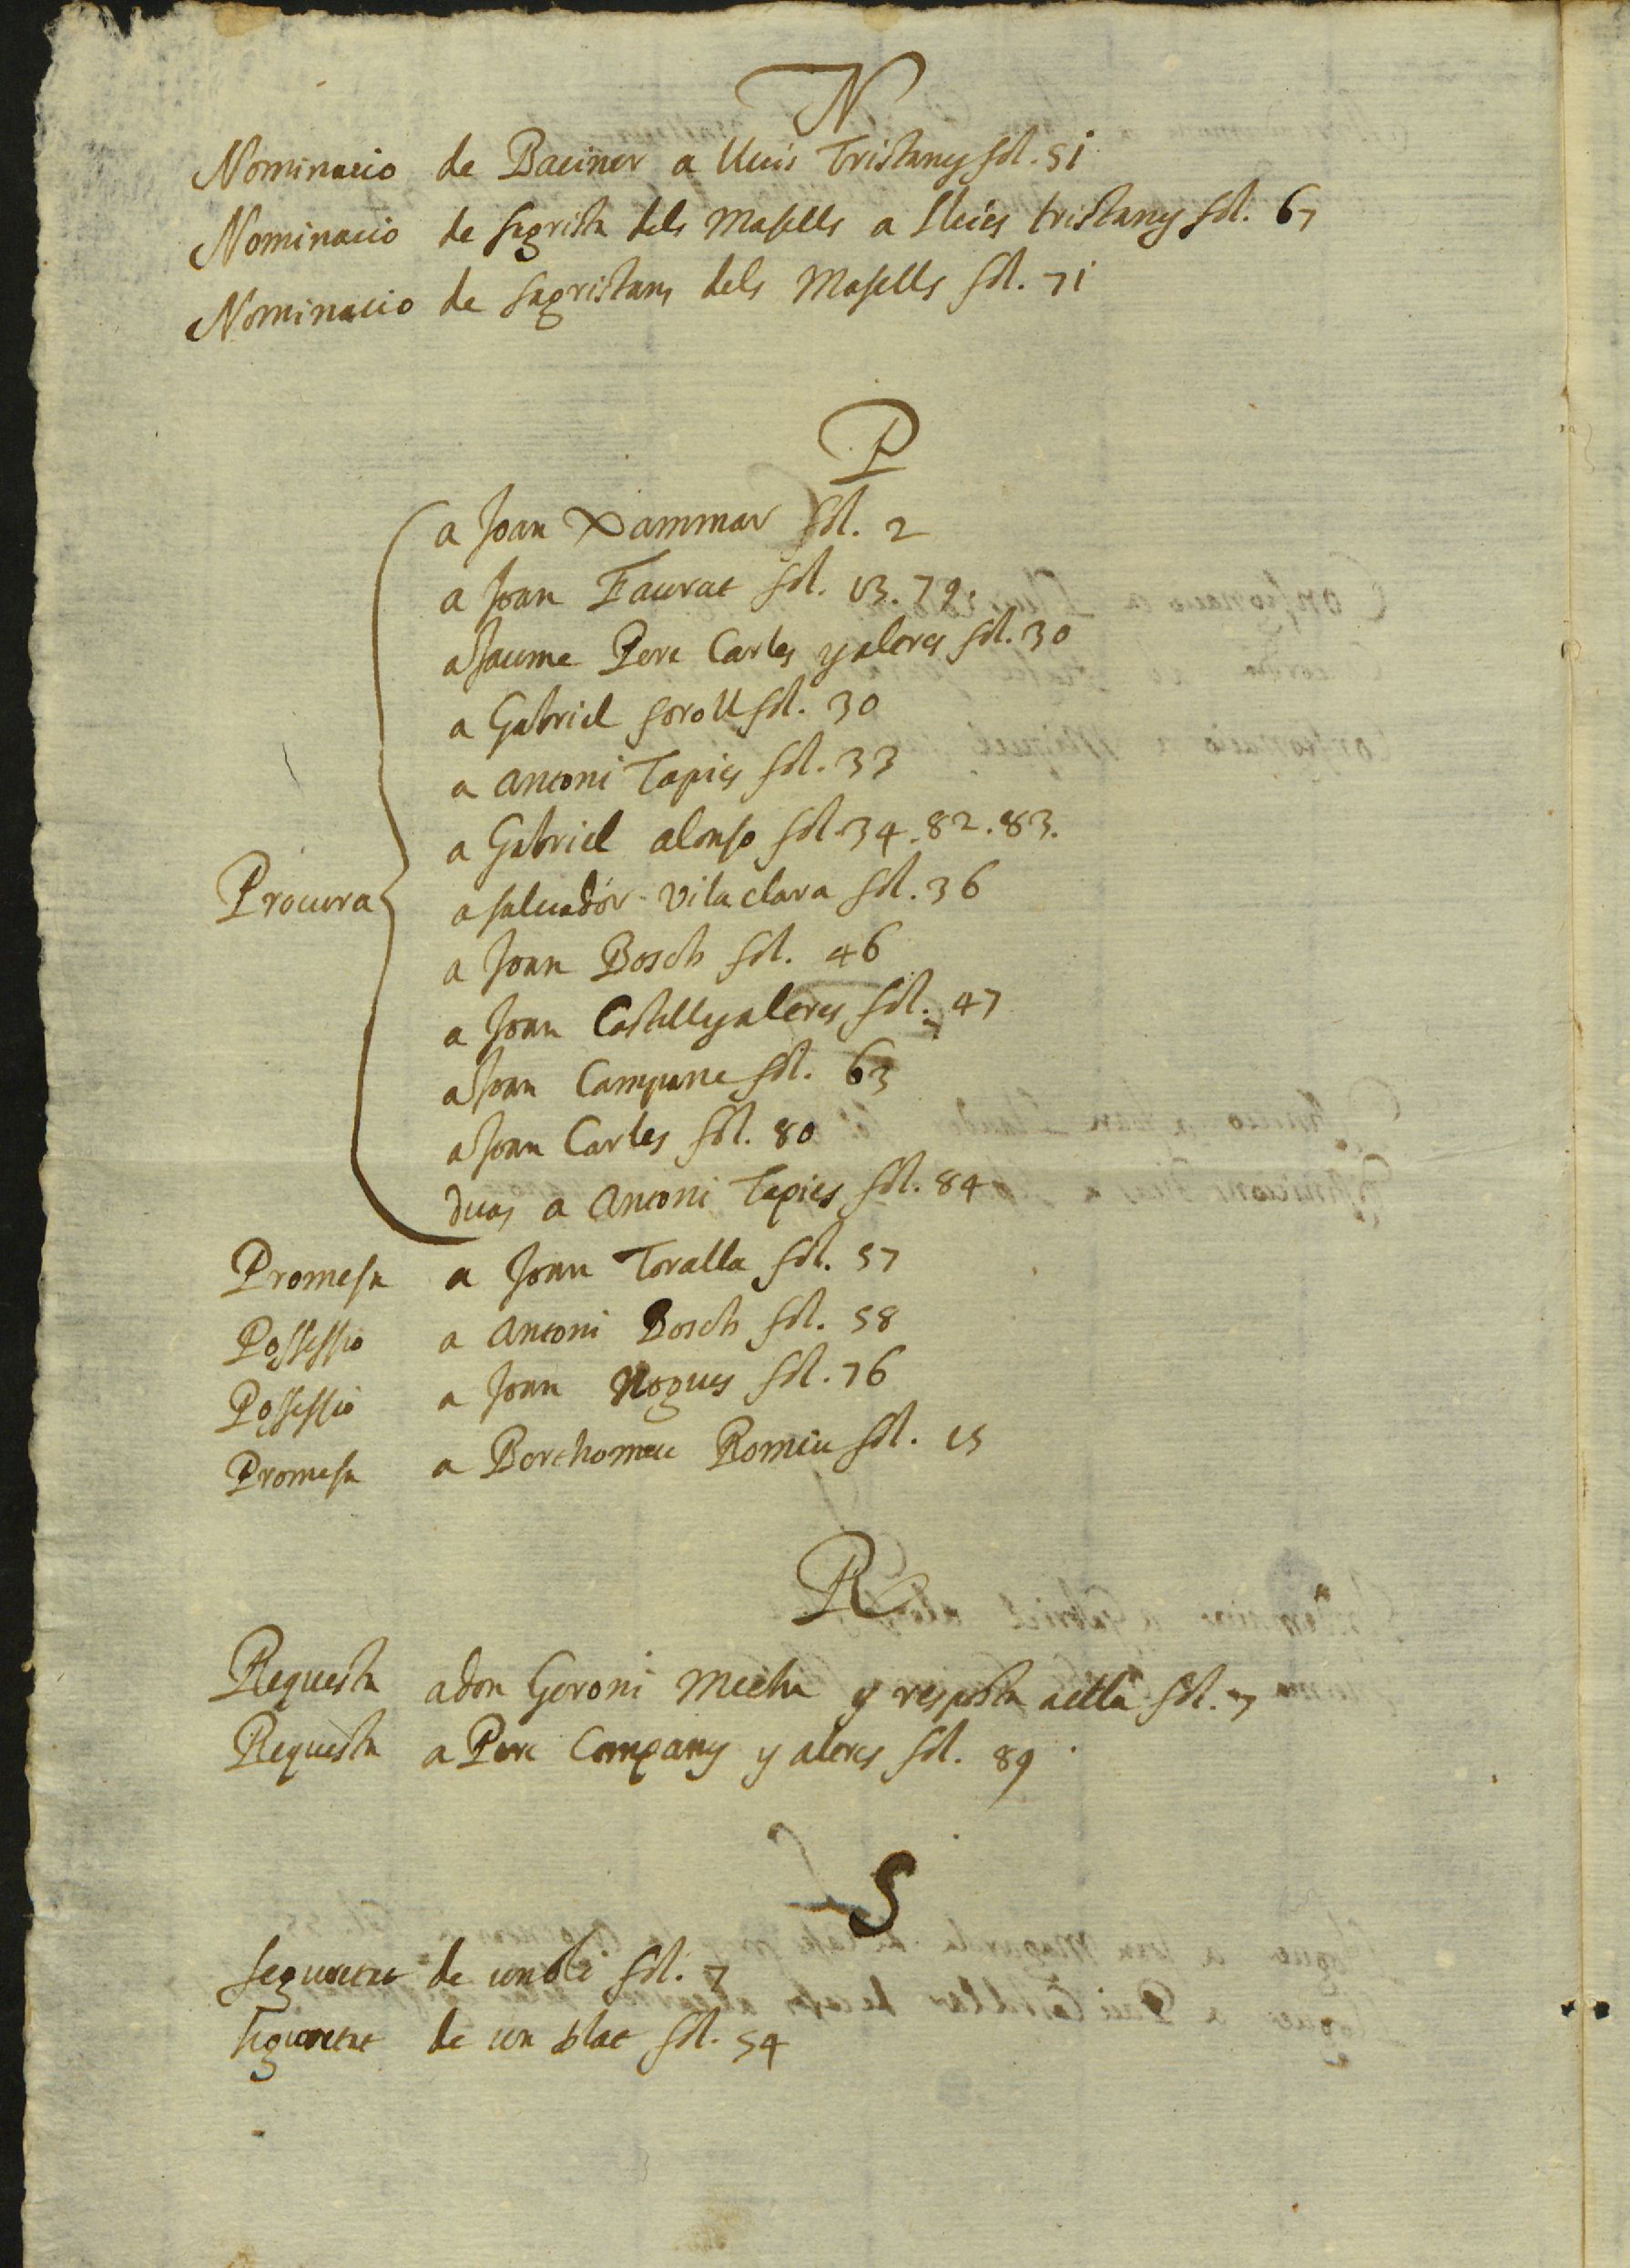 N
Nominacio de Baciner a Lluis Tristany fol. 51
Nominacio de sagrista dels Masells a Lluis tristany fol. 67
Nominacio de sagristans dels Masells fol. 71
P
a Joan Xammar fol. 2
a Joan Faurat fol. 13. 79.
a Jaume Pere Carles y altres fol. 30
a Gabriel soroll fol. 30
a Antoni Tapies fol. 33
a Gabriel alonso fol. 34. 82. 83.
Procura a saluador vilaclara fol. 36
a Joan Bosch fol. 46
a Joan Castell y altres fol. 47
a Joan Campane fol. 63
a Joan Carles fol. 80
duas a Antoni Tapies fol. 84
Promesa a Joan Toralla fol. 57
Possessio a Antoni Bosch fol. 58
Possessio a Joan Nogues fol. 76
Promesa a Borthomeu Romiu fol. 15
R
Requesta a don Geroni Mecha y resposta aella fol. 7
Requesta a Pere Company y altres fol. 89
S
seguretat de un oli fol. 7
seguretat de un blat fol. 54